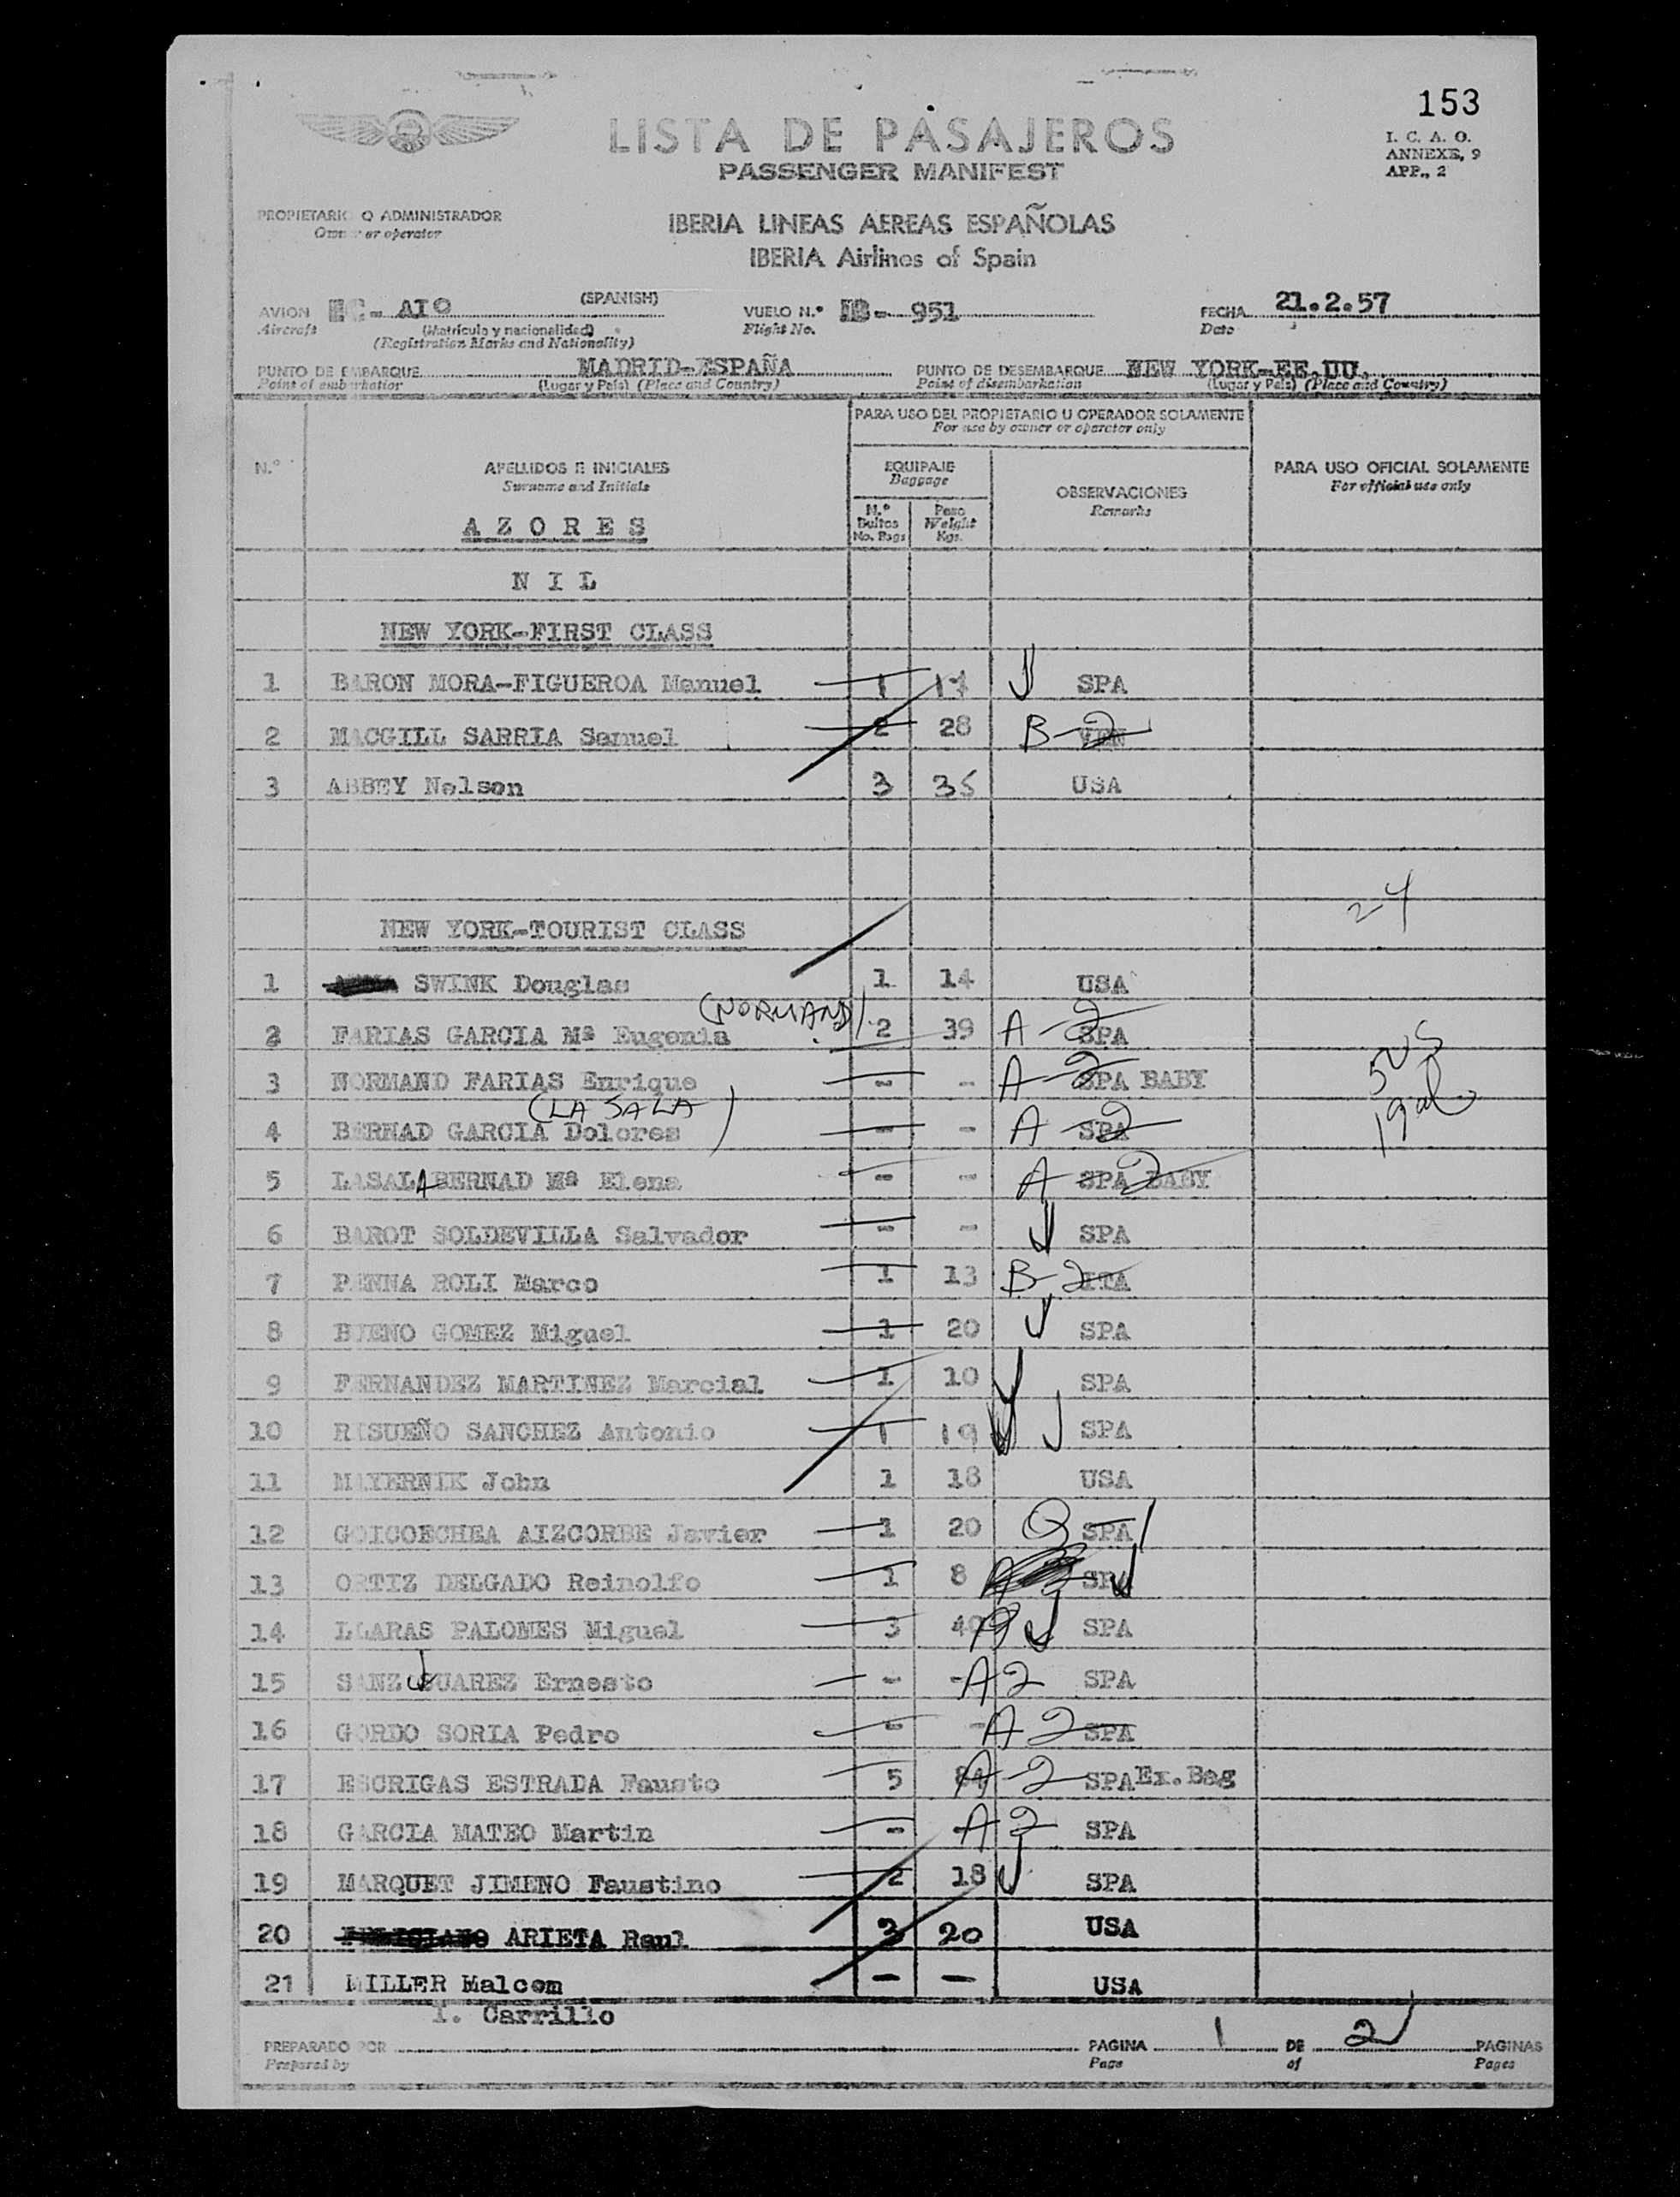 153
LISTA DE PASAJEROS
PASSENGER MANIFEST
I. C. A. O.
ANNEXE, 9
APP., 2
PROPIETARIO O ADMINISTRADOR
Owner or operator
IBERIA LINEAS AEREAS ESPAÑOLAS
IBERIA Airlines of Spain
AVION EC- AIO (SPANISH) VUELO N.º IB- 951 FECHA 21.2.57
Aircraft (Matrícula y nacionalidad) Flight No. Date
(Registration Marks and Nationality)
PUNTO DE EMBARQUE MADRID-ESPAÑA PUNTO DE DESEMBARQUE NEW YORK-EE.UU.
Point of embarkation (Lugar y País) (Place and Country) Point of disembarkation (Lugar y País) (Place and Country)
PARA USO DEL PROPIETARIO U OPERADOR SOLAMENTE
For use by owner or operator only
N.º APELLIDOS E INICIALES EQUIPAJE OBSERVACIONES PARA USO OFICIAL SOLAMENTE
Surname and Initials Baggage Remarks For official use only
N.º Bultos No. Bags Peso Weight Kgs.
A Z O R E S
N I L
NEW YORK-FIRST CLASS
1 BARON MORA-FIGUEROA Manuel 1 17 SPA
2 MACGILL SARRIA Samuel 2 28 B-2 VEN
3 ABBEY Nelson 3 35 USA
24
NEW YORK-TOURIST CLASS
1 SWINK Douglas 1 14 USA
(NORMAND)
2 FARIAS GARCIA Mª Eugenia 2 39 A-2 SPA
5US
3 NORMAND FARIAS Enrique - - A-2 SPA BABY
19al
(LA SALA)
4 BERNAD GARCIA Dolores - - A-2 SPA
5 LASALA BERNAD Mª Elena - - A-2 SPA BABY
6 BAROT SOLDEVILLA Salvador - - SPA
7 PENNA ROLI Marco 1 13 B-2 ITA
8 BUENO GOMEZ Miguel 1 20 SPA
9 FERNANDEZ MARTINEZ Marcial 1 10 SPA
10 RISUEÑO SANCHEZ Antonio 1 19 SPA
11 MAYERNIK John 1 18 USA
12 GOICOECHEA AIZCORBE Javier 1 20 SPA
13 ORTIZ DELGADO Reinolfo 1 8 SPA
14 LLARAS PALOMES Miguel 3 40 SPA
15 SANZ SUAREZ Ernesto - - A2 SPA
16 GORDO SORIA Pedro - - A2 SPA
17 ESCRIGAS ESTRADA Fausto 5 84 A-2 SPA Ex.Bag
18 GARCIA MATEO Martin - - A2 SPA
19 MARQUET JIMENO Faustino 2 18 SPA
20 FELICIANO ARIETA Raul 3 20 USA
21 MILLER Malcom - - USA
I. Carrillo
PREPARADO POR PAGINA 1 DE 2 PAGINAS
Prepared by Page of Pages